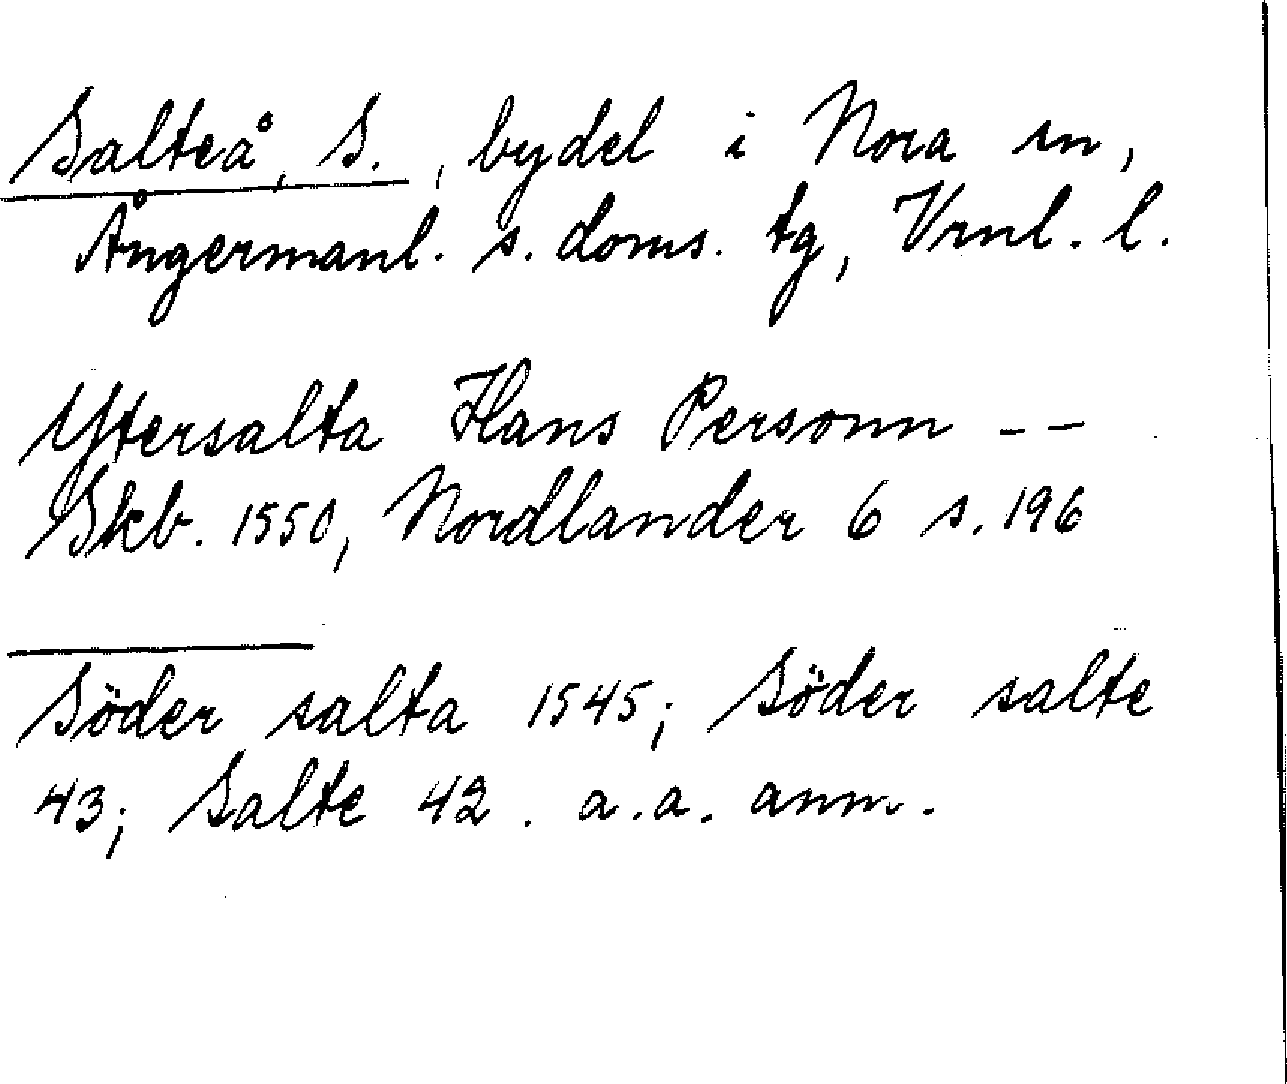 Salteå, S., bydel i Nora sn,
Ångermanl. s. doms. tg, Vrnl. l.
Ytersalta Hans Personn - -
Skb. 1550, Nordlander 6 s. 196
Söder salta 1545; Söder salte
43; Salte 42. a.a. anm.